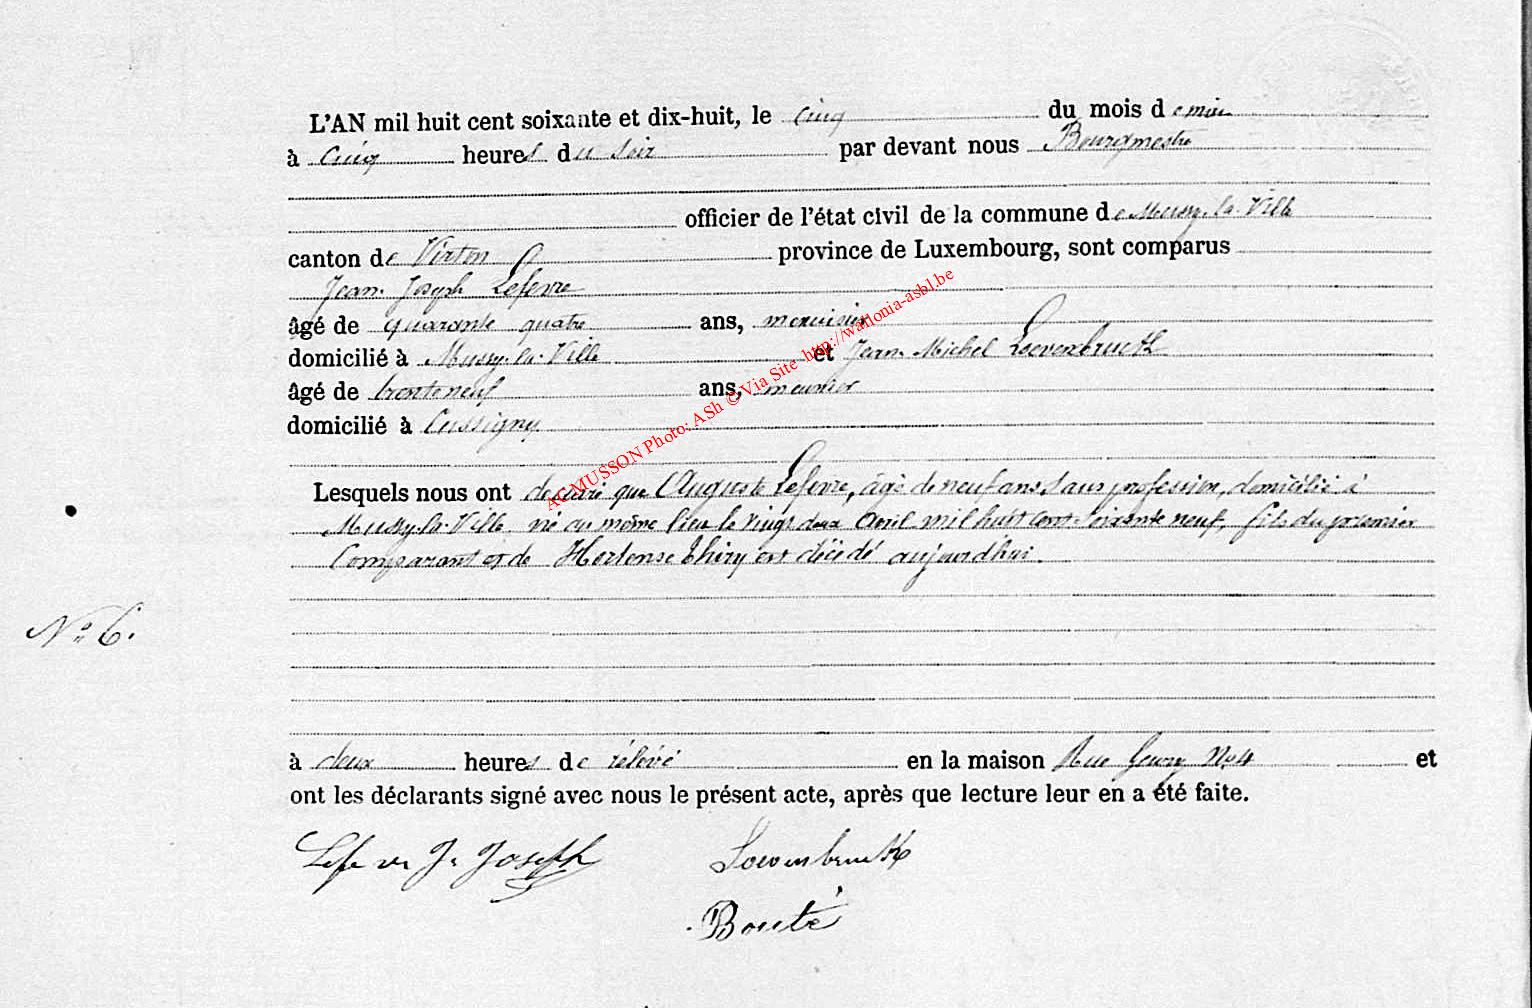 L'AN mil huit cent soixante et dix-huit, le cinq du mois de mai
à cinq heures du soir par devant nous Bourgmestre
officier de l'état civil de la commune de Mussy-la-Ville
canton de Virton province de Luxembourg, sont comparus
Jean Joseph Lefevre
âgé de quarante quatre ans, menuisier
domicilié à Mussy-la-Ville et Jean Michel Loevenbruck
âgé de trente neuf ans, meunier
domicilié à Cussigny
Lesquels nous ont déclaré que Auguste Lefevre, âgé de neuf ans sans profession, domicilié à
Mussy-la-Ville né au même lieu le vingt deux Avril mil huit cent soixante neuf, fils du premier
Comparant et de Hortense Thiry est décédé aujourd'hui.
No 6.
à deux heures de rélévé en la maison Rue No 4 et
ont les déclarants signé avec nous le présent acte, après que lecture leur en a été faite.
Lefevre J. Joseph Loevenbruck
Bouté
AC MUSSON Photo: ASh © Via Site http://wallonia-asbl.be